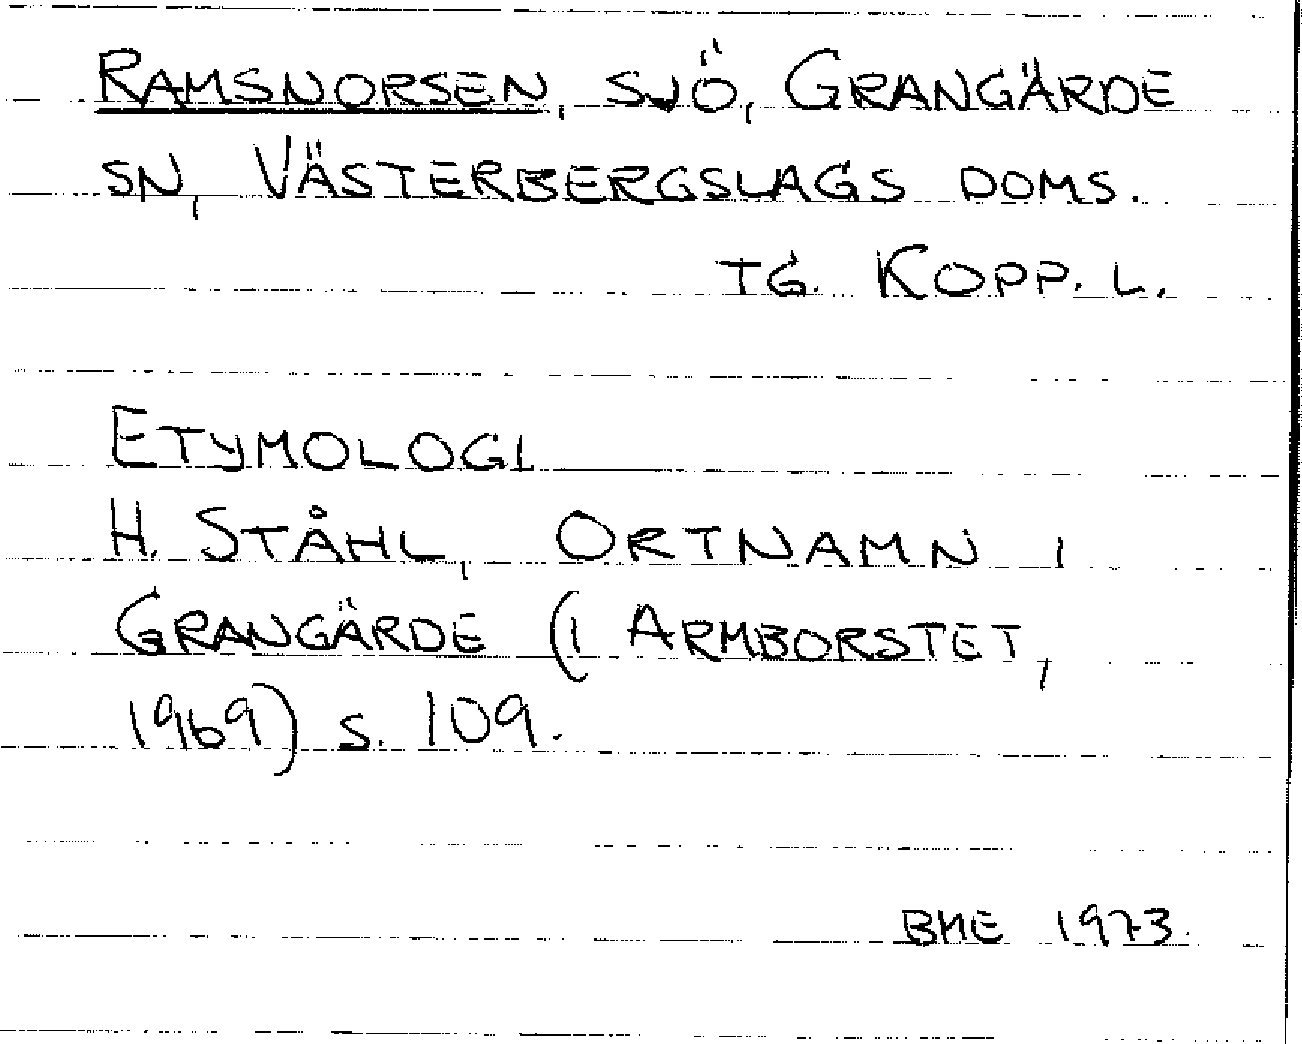 RAMSNORSEN, SJÖ, GRANGÄRDE
SN, VÄSTERBERGSLAGS DOMS.
TG. KOPP. L.
ETYMOLOGI
H. STÅHL, ORTNAMN I
GRANGÄRDE (I ARMBORSTET,
1969) S. 109.
BHE 1973